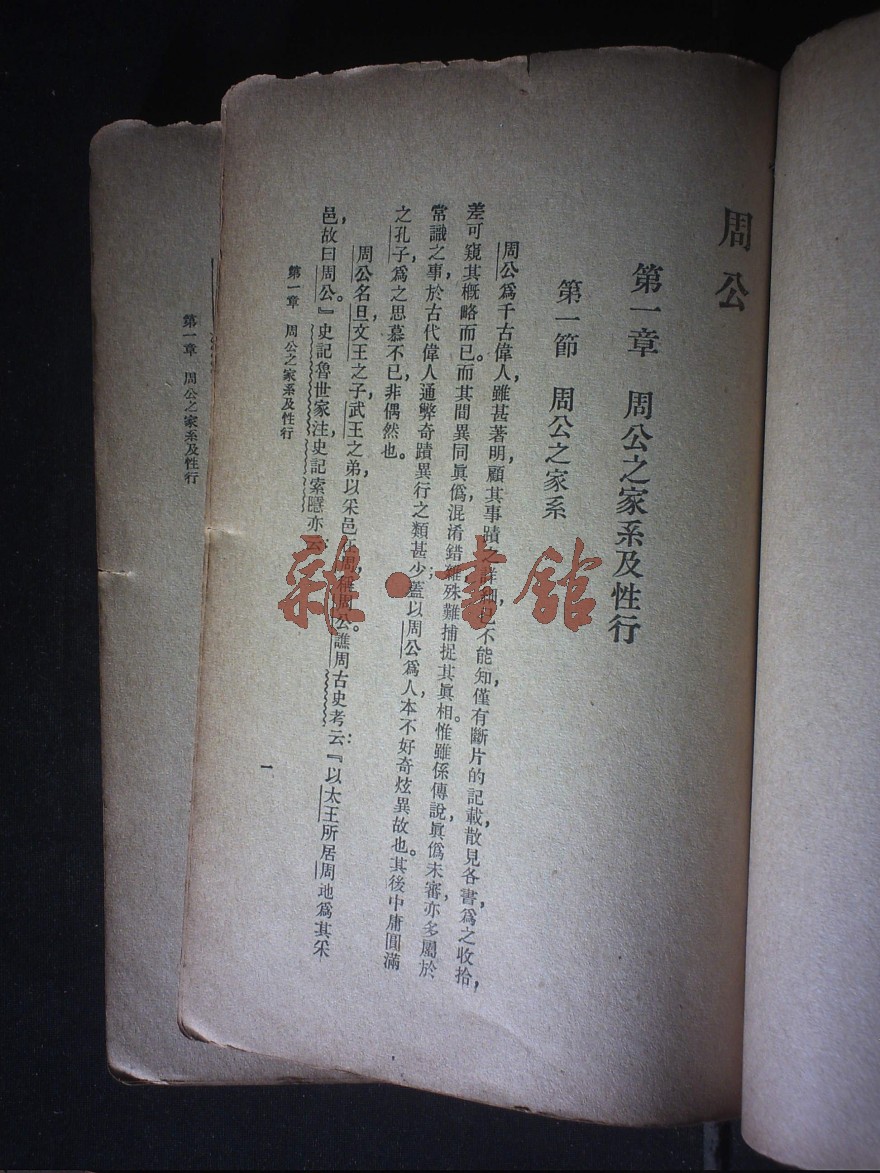 周公
第一章　周公之家系及性行
第一節　周公之家系
周公爲千古偉人，雖甚著明，顧其事蹟之詳細，已不能知，僅有斷片的記載，散見各書，爲之收拾，
差可窺其概略而已。而其間異同眞僞，混淆錯雜，殊難捕捉其眞相。惟雖係傳說，眞僞未審，亦多屬於
常識之事，於古代偉人通弊奇蹟異行之類甚少；蓋以周公爲人，本不好奇炫異故也。其後中庸圓滿
之孔子，爲之思慕不已，非偶然也。
周公名旦，文王之子，武王之弟，以采邑在周，稱周公。譙周古史考云：『以太王所居周地爲其采
邑，故曰周公。』史記魯世家注，史記索隱亦云
第一章　周公之家系及性行
一
第一章　周公之家系及性行
雜·書館